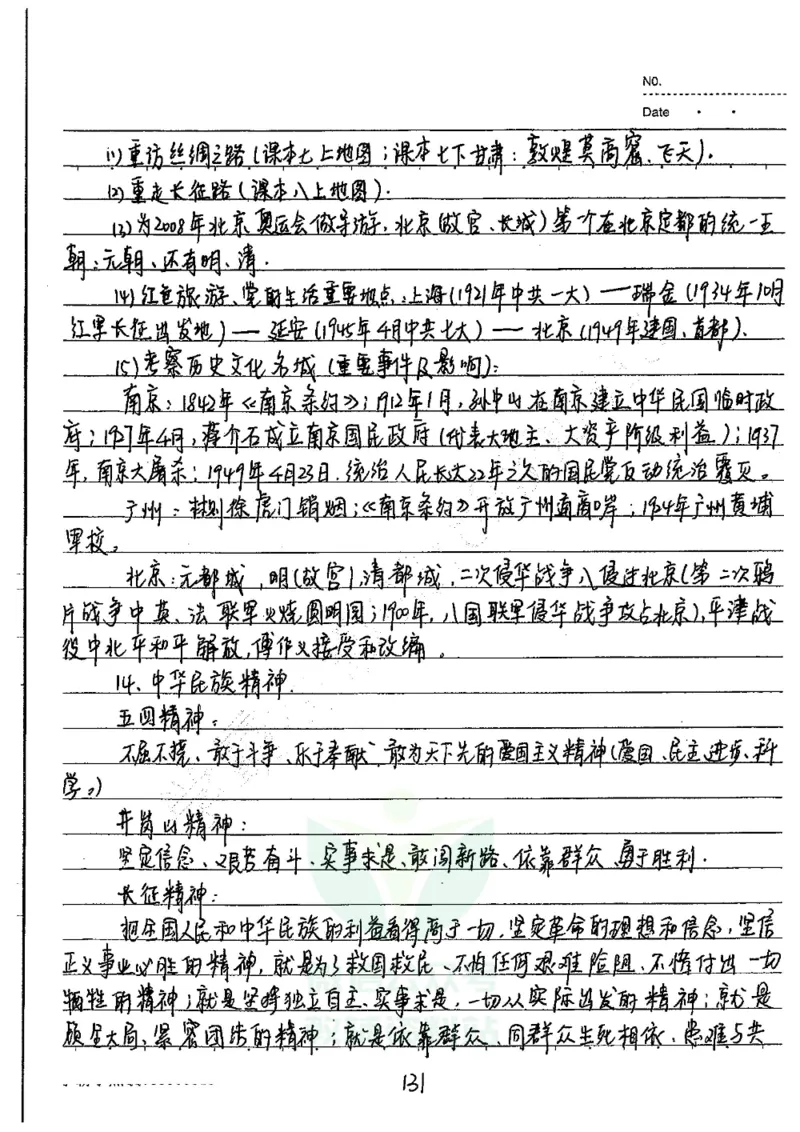 NO.
Date
(1)重访丝绸之路(课本七上地图;课本七下甘肃:敦煌莫高窟、飞天).
(2)重走长征路(课本八上地图).
(3)为2008年北京奥运会做导游,北京(故宫、长城)第一个在北京定都的统一王
朝:元朝、还有明、清.
(4)红色旅游、党的生活重要地点:上海(1921年中共一大)——瑞金(1934年10月
红军长征出发地)——延安(1945年4月中共七大)——北京(1949年建国、首都).
(5)考察历史文化名城(重要事件及影响):
南京:1842年《南京条约》;1912年1月,孙中山在南京建立中华民国临时政
府;1927年4月,蒋介石成立南京国民政府(代表大地主、大资产阶级利益);1937
年,南京大屠杀;1949年4月23日.统治人民长达22年之久的国民党反动统治覆灭。
广州:林则徐虎门销烟;《南京条约》开放广州通商口岸;1924年广州黄埔
军校。
北京:元都城,明(故宫),清都城,二次侵华战争入侵过北京(第二次鸦
片战争中英、法联军火烧圆明园;1900年,八国联军侵华战争攻占北京),平津战
役中北平和平解放,傅作义接受和改编。
14、中华民族精神.
五四精神:
不屈不挠、敢于斗争、乐于奉献、敢为天下先的爱国主义精神(爱国、民主、进步、科
学。)
井岗山精神:
坚定信念、艰苦奋斗、实事求是、敢闯新路、依靠群众、勇于胜利.
长征精神:
把全国人民和中华民族的利益看得高于一切,坚定革命的理想和信念,坚信
正义事业必胜的精神,就是为了救国救民、不怕任何艰难险阻、不惜付出一切
牺牲的精神;就是坚持独立自主、实事求是,一切从实际出发的精神;就是
顾全大局、紧密团结的精神;就是依靠群众、同群众生死相依、患难与共
131